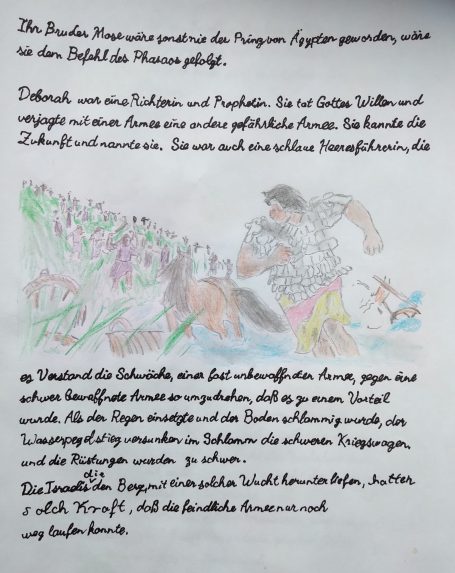 Ihr Bruder Mose wäre sonst nie der Prinz von Ägypten geworden, wäre
sie dem Befehl des Pharaos gefolgt.
Deborah war eine Richterin und Prophetin. Sie tat Gottes Willen und
verjagte mit einer Armee eine andere gefährliche Armee. Sie kannte die
Zukunft und nannte sie. Sie war auch eine schlaue Heeresführerin, die
es Verstand die Schwäche, einer fast unbewaffneten Armee, gegen eine
schwer Bewaffnete Armee so umzudrehen, daß es zu einem Vorteil
wurde. Als der Regen einsetzte und der Boden schlammig wurde, der
Wasserpegel stieg versunken im Schlamm die schweren Kriegswagen,
und die Rüstungen wurden zu schwer.
Die Israelis die den Berg, mit einer solcher Wucht herunter liefen, hatten
solch Kraft, daß die feindliche Armee nur noch
weg laufen konnte.